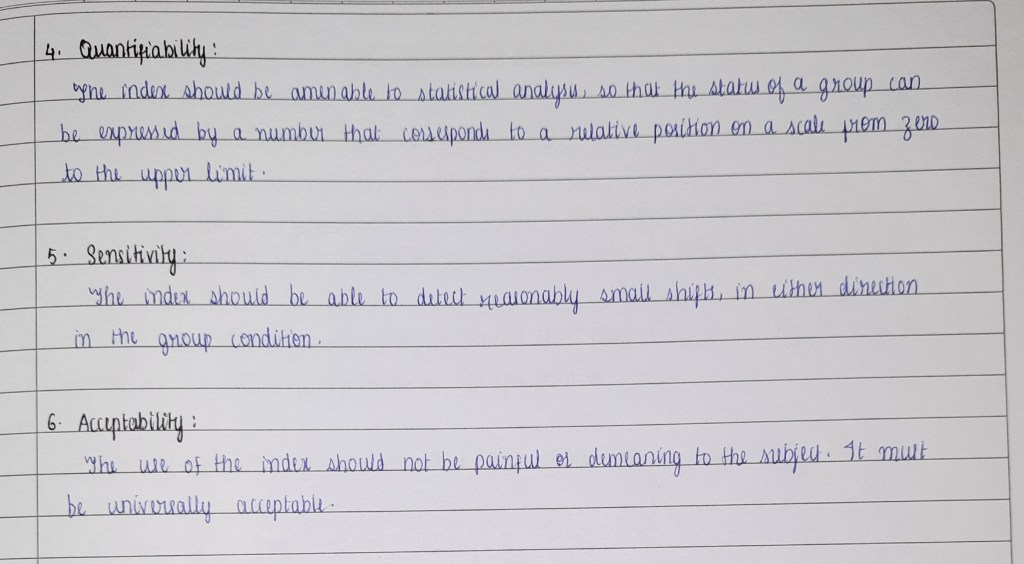 4. Quantifiability:
The index should be amenable to statistical analysis, so that the status of a group can
be expressed by a number that corresponds to a relative position on a scale from zero
to the upper limit.
5. Sensitivity:
The index should be able to detect reasonably small shifts, in either direction
in the group condition.
6. Acceptability:
The use of the index should not be painful or demeaning to the subject. It must
be universally acceptable.